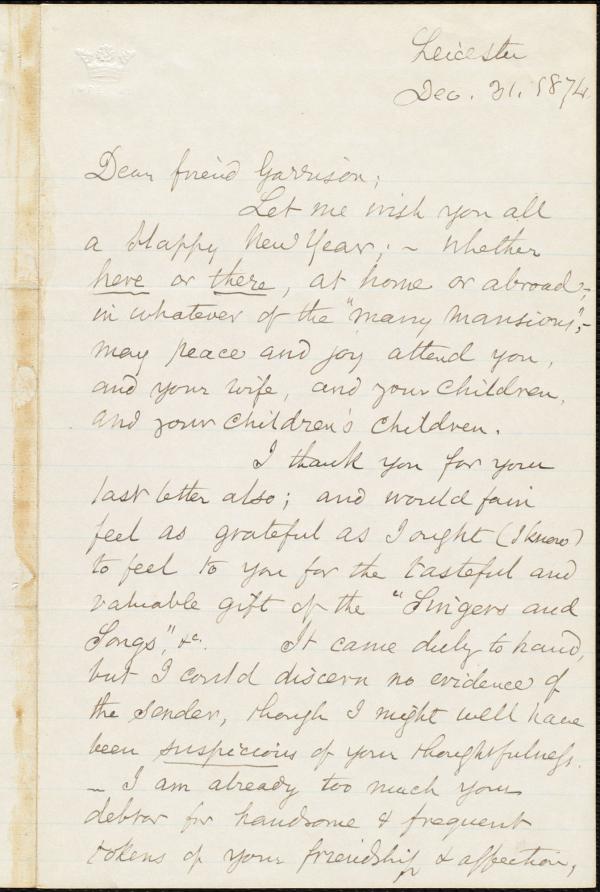 Leicester
Dec. 31. 1874
Dear friend Garrison;
Let me wish you all
a Happy New Year; – whether
here or there, at home or abroad,–
in whatever of the "many mansions",–
may peace and joy attend you,
and your wife, and your children,
and your children's children.
I thank you for your
last letter also; and would fain
feel as grateful as I ought (I know)
to feel to you for the tasteful and
valuable gift of the "Singers and
Songs", &c. It came duly to hand,
but I could discern no evidence of
the sender, though I might well have
been suspicious of your thoughtfulness.
– I am already too much your
debtor for handsome & frequent
tokens of your friendship & affection,